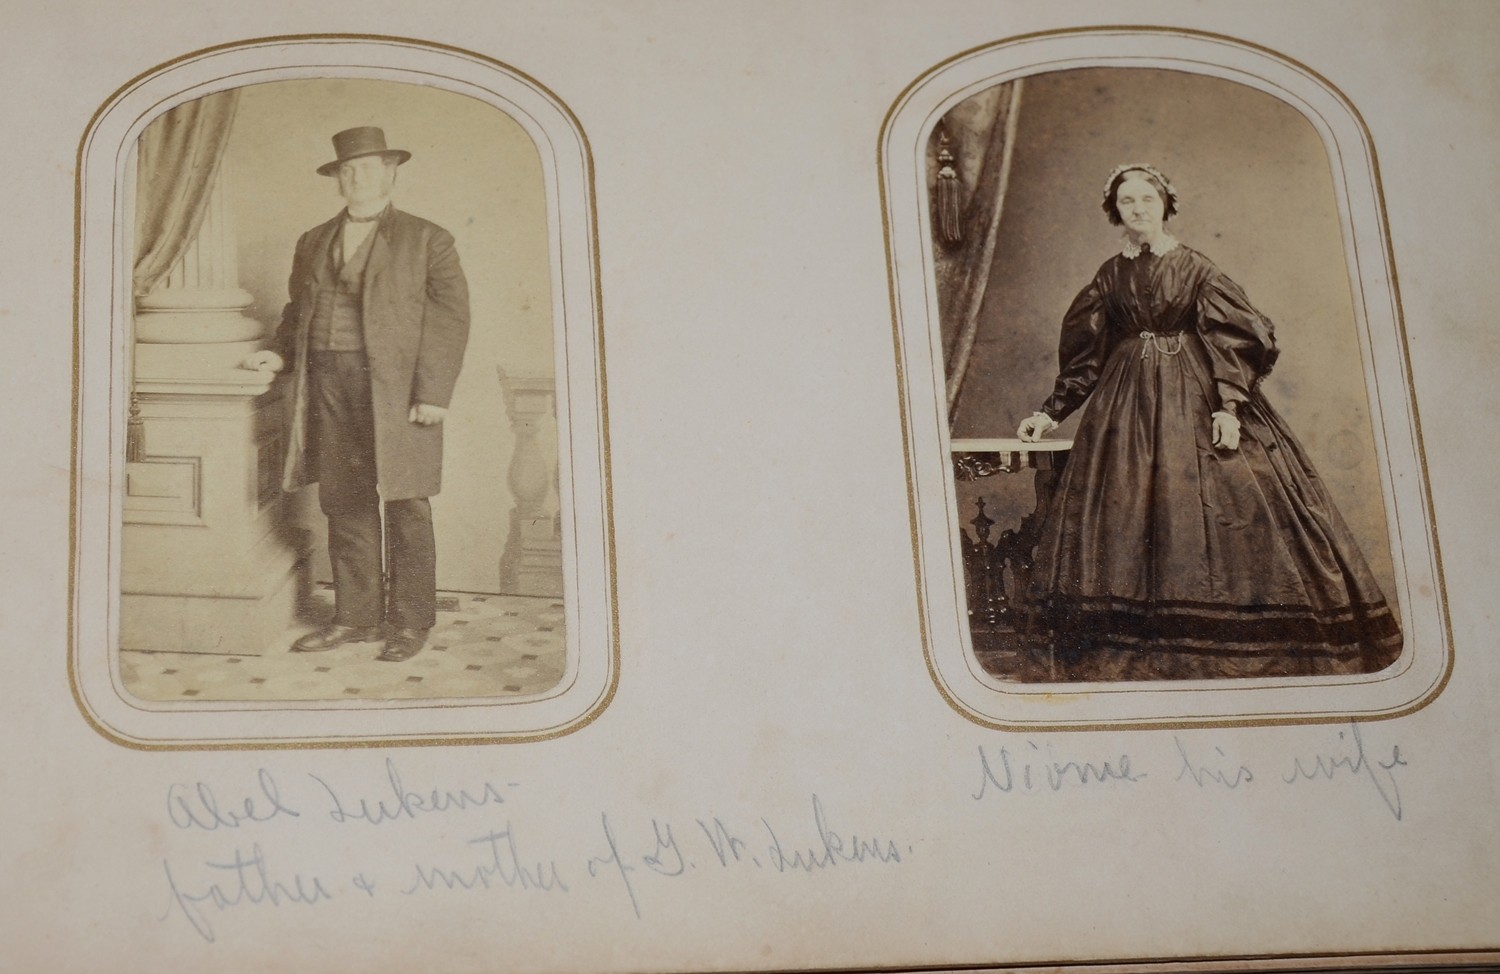 Abel Lukens-
Niome his wife
father & mother of G. W. Lukens.